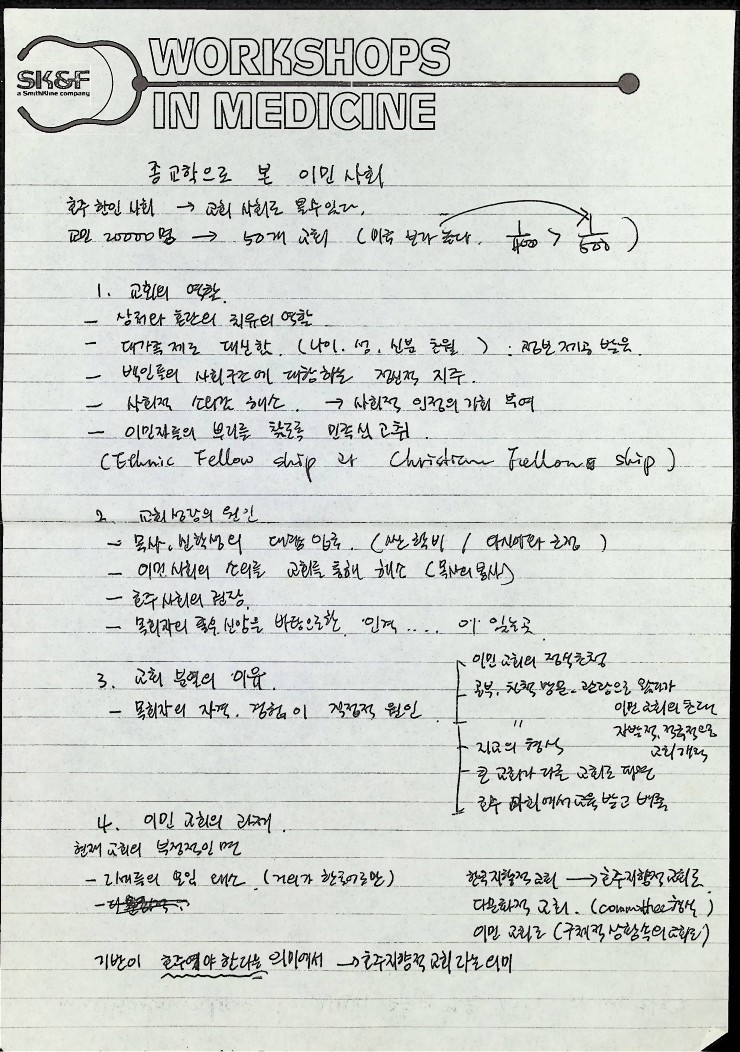 SK&F
a SmithKline company
WORKSHOPS
IN MEDICINE
종교학으로 본 이민사회
호주 한인 사회 → 교회 사회로 볼수있다.
교민 20000명 → 50개 교회 (미국 보다 높다. 1/400 > 1/500)
1. 교회의 역할
- 상처와 혼란의 치유의 역할
- 대가족 제도 대신함. (나이. 성. 신분 초월) : 정보제공 받음.
- 백인들의 사회구조에 대항하는 정신적 지주.
- 사회적 소외감 해소. → 사회적 인정의 기회 부여
- 이민자들의 뿌리를 찾도록 민족심 고취.
(Ethnic Fellow ship 과 Christian Fellow ship)
2. 교회성장의 원인
- 목사, 신학생의 대량 입국. (싼 학비 / 아시아와 근접)
- 이민사회의 소외를 교회를 통해 해소 (목사의 봉사)
- 호주 사회의
- 목회자의 신앙을 바탕으로한 인격 .... 이 있는곳
3. 교회 분열의 이유.
- 목회자의 자격. 경험이 직접적 원인
이민 교회의 정식초청
공부. 친척 방문. 관광으로 왔다가
이민 교회의 초대
〃 자발적, 적극적으로
교회 개척
지교의 형식
큰 교회가 다른 교회로 파견
호주 교회에서 교육 받고 배출
4. 이민 교회의 과제.
현재 교회의 부정적인 면
- 2세들의 모임 (거의가 한국어로만)
한국지향적 교회 → 호주지향적교회로.
다문화적 교회. (committee 형식)
이민 교회로 (구체적 상황속의 교회로)
기반이 호주여야 한다는 의미에서 → 호주지향적 교회 라는 의미